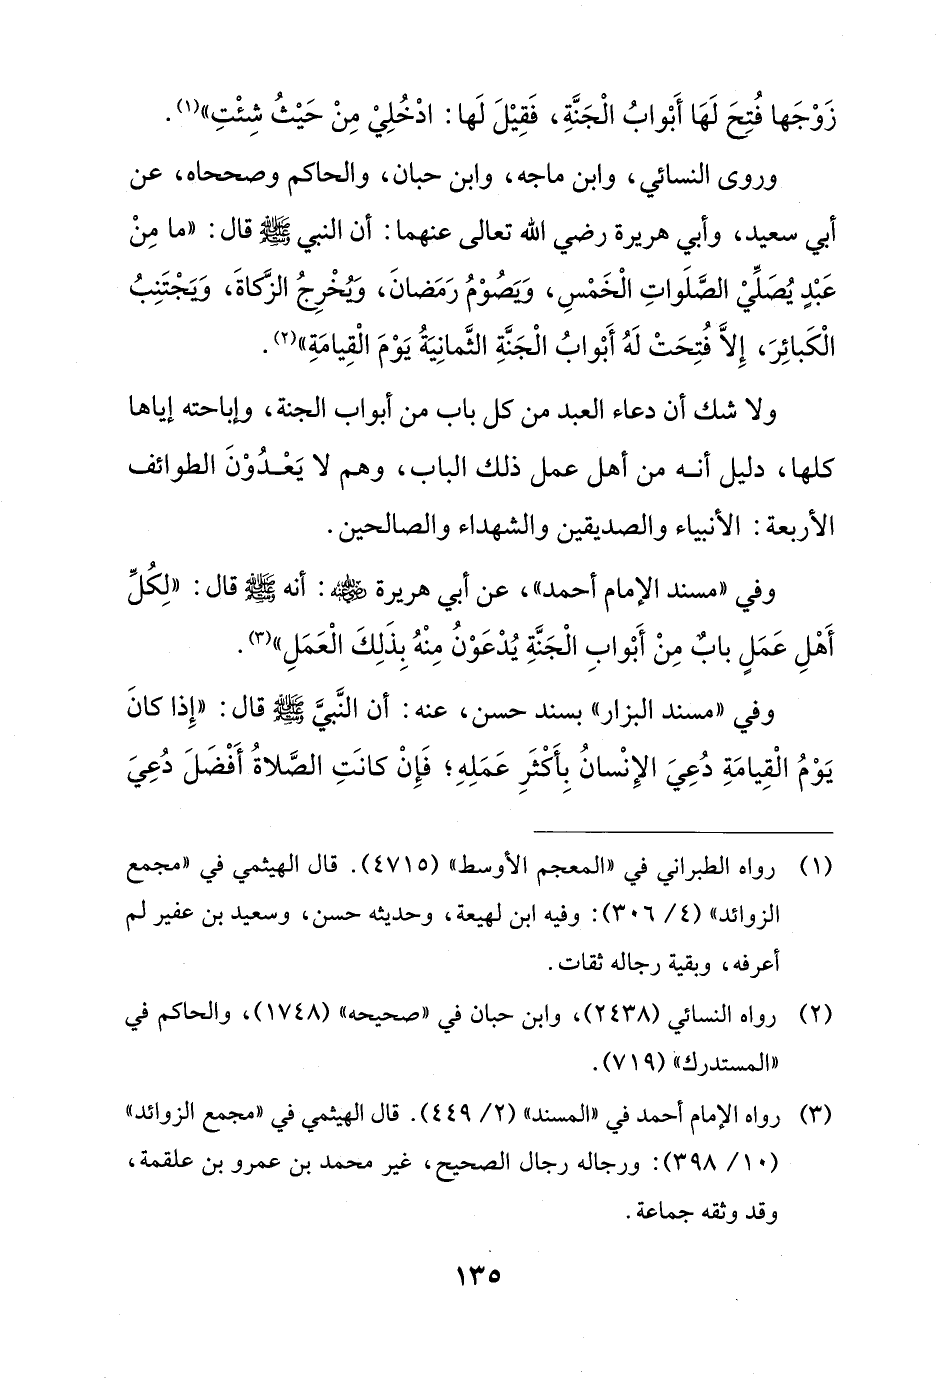 زَوْجَها فُتِحَ لَهَا أَبْوابُ الْجَنَّةِ، فَقِيْلَ لَها: ادْخُلِيْ مِنْ حَيْثُ شِئْتِ»(١).
وروى النسائي، وابن ماجه، وابن حبان، والحاكم وصححاه، عن
أبي سعيد، وأبي هريرة رضي الله تعالى عنهما: أن النبي ﷺ قال: «ما مِنْ
عَبْدٍ يُصَلِّيْ الصَّلَواتِ الْخَمْسِ، وَيَصُوْمُ رَمَضانَ، وَيُخْرِجُ الزَّكاةَ، وَيَجْتَنِبُ
الْكَبائِرَ، إِلاَّ فُتِحَتْ لَهُ أَبْوابُ الْجَنَّةِ الثَّمانِيَةُ يَوْمَ الْقِيامَةِ»(٢).
ولا شك أن دعاء العبد من كل باب من أبواب الجنة، وإباحته إياها
كلها، دليل أنه من أهل عمل ذلك الباب، وهم لا يَعْدُوْنَ الطوائف
الأربعة: الأنبياء والصديقين والشهداء والصالحين.
وفي «مسند الإمام أحمد»، عن أبي هريرة رضي الله عنه: أنه ﷺ قال: «لِكُلِّ
أَهْلِ عَمَلٍ بابٌ مِنْ أَبْوابِ الْجَنَّةِ يُدْعَوْنُ مِنْهُ بِذَلِكَ الْعَمَلِ»(٣).
وفي «مسند البزار» بسند حسن، عنه: أن النَّبيَّ ﷺ قال: «إِذا كانَ
يَوْمُ الْقِيامَةِ دُعِيَ الإِنْسانُ بِأَكْثَرِ عَمَلِهِ؛ فَإِنْ كانَتِ الصَّلاةُ أَفْضَلَ دُعِيَ
(١) رواه الطبراني في «المعجم الأوسط» (٤٧١٥). قال الهيثمي في «مجمع
الزوائد» (٤/ ٣٠٦): وفيه ابن لهيعة، وحديثه حسن، وسعيد بن عفير لم
أعرفه، وبقية رجاله ثقات.
(٢) رواه النسائي (٢٤٣٨)، وابن حبان في «صحيحه» (١٧٤٨)، والحاكم في
«المستدرك» (٧١٩).
(٣) رواه الإمام أحمد في «المسند» (٢/ ٤٤٩). قال الهيثمي في «مجمع الزوائد»
(١٠/ ٣٩٨): ورجاله رجال الصحيح، غير محمد بن عمرو بن علقمة،
وقد وثقه جماعة.
١٣٥